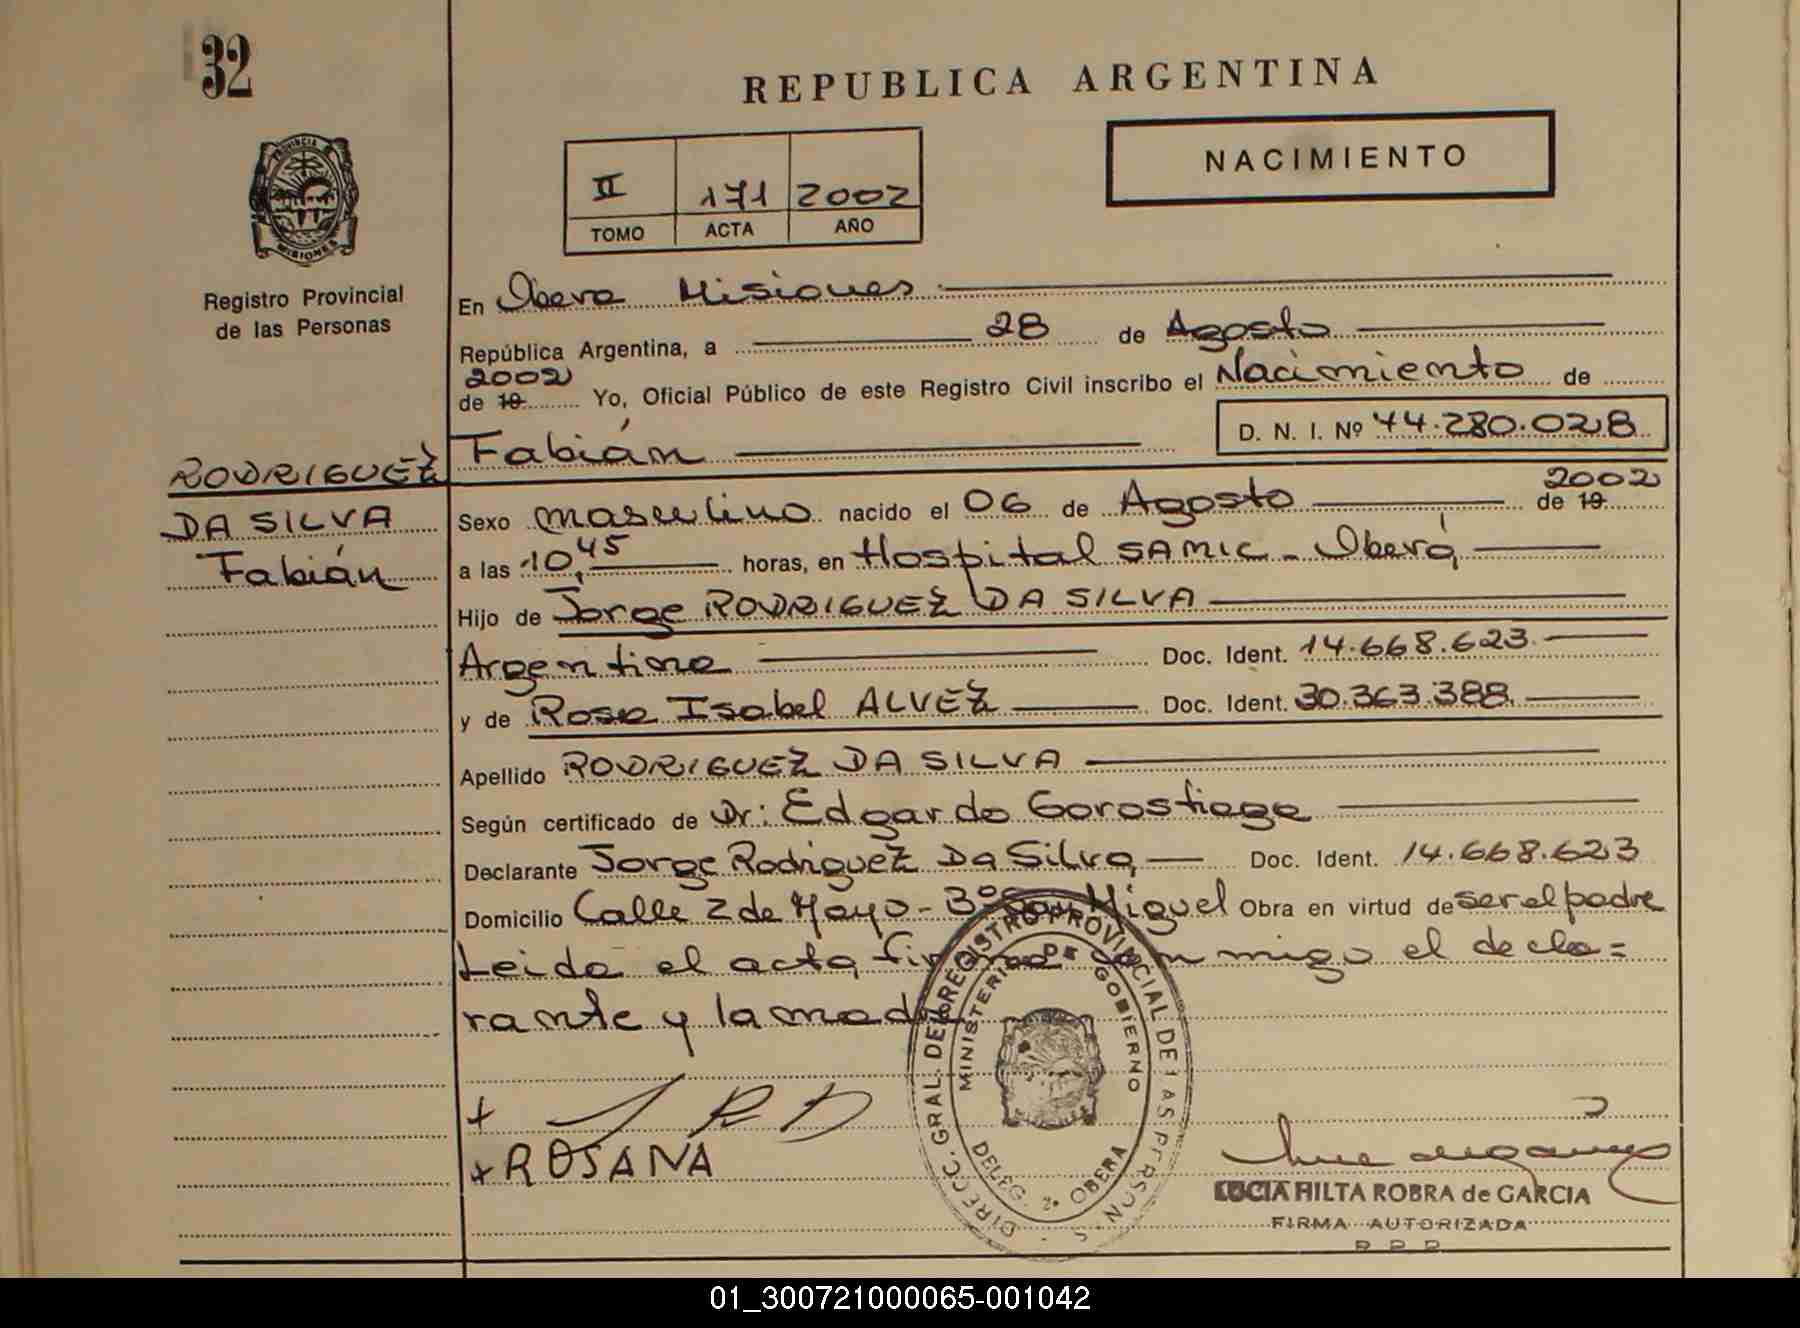 32
REPUBLICA ARGENTINA
NACIMIENTO
II 171 2002
TOMO ACTA AÑO
PROVINCIA DE MISIONES
Registro Provincial
de las Personas
En Obera Misiones
República Argentina, a 28 de Agosto
2002
de 19 Yo, Oficial Público de este Registro Civil inscribo el Nacimiento de
Fabián D. N. I. Nº 44.280.028
RODRIGUEZ
DA SILVA
Fabián
2002
Sexo masculino nacido el 06 de Agosto de 19
a las 10,45 horas, en Hospital SAMIC - Oberá
Hijo de Jorge RODRIGUEZ DA SILVA
Argentina Doc. Ident. 14.668.623
y de Rosa Isabel ALVEZ Doc. Ident. 30.363.388
Apellido RODRIGUEZ DA SILVA
Según certificado de Dr: Edgardo Gorostiaga
Declarante Jorge Rodriguez Da Silva Doc. Ident. 14.668.623
Domicilio Calle 2 de Mayo - Bº San Miguel Obra en virtud de ser el padre
Leida el acta, firman conmigo el decla=
rante y la madre
+ J R D
+ ROSANA
DIRECC. GRAL. DEL REGISTRO PROVINCIAL DE LAS PERSONAS
MINISTERIO DE GOBIERNO
DELEG. 2ª OBERA
LUCIA HILTA ROBRA de GARCIA
FIRMA AUTORIZADA
01_300721000065-001042